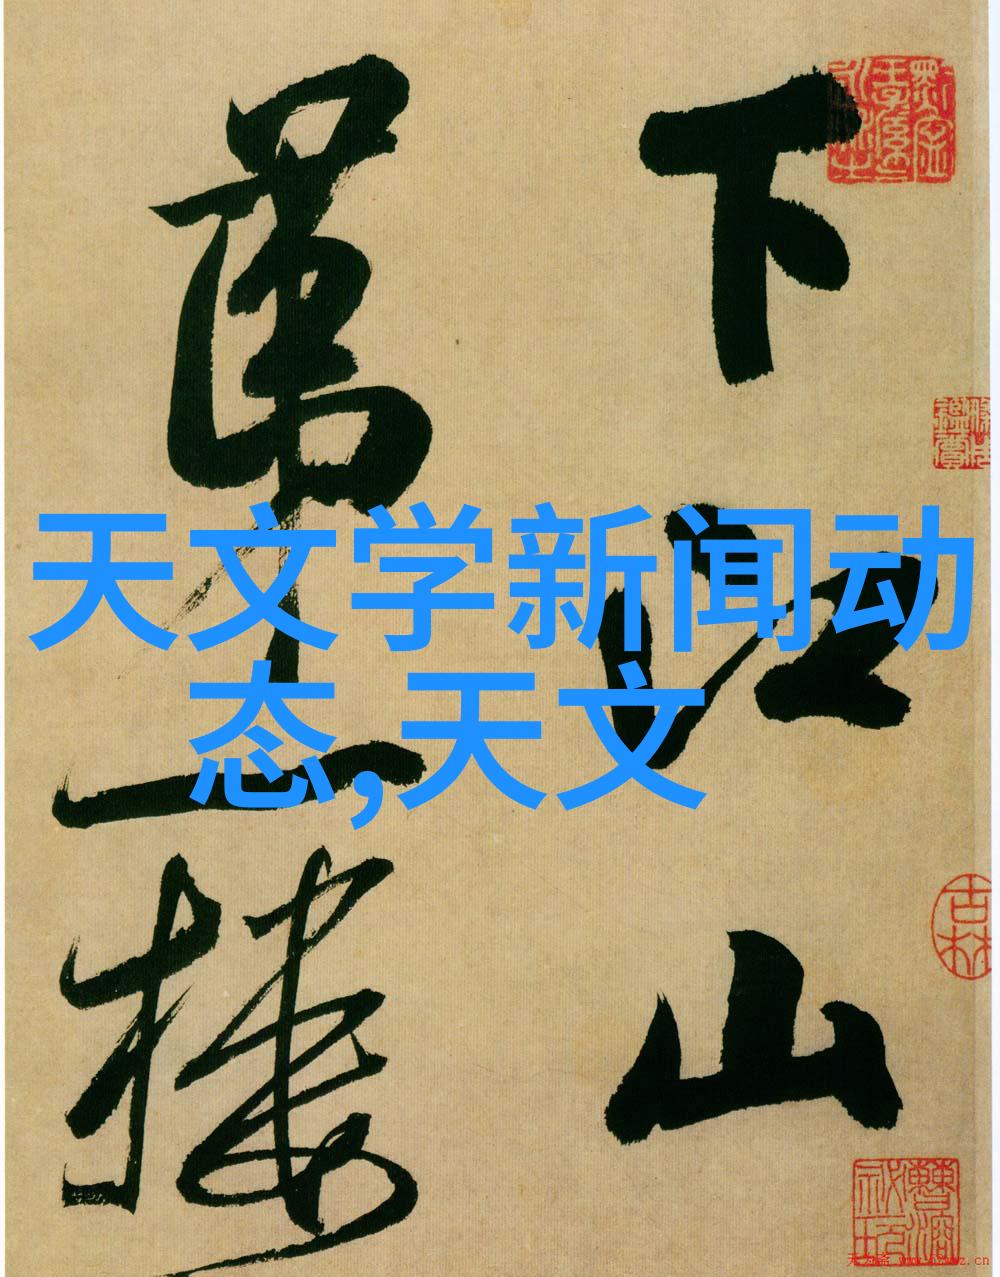 天文学新闻动
态,天文
下江山
第一樓